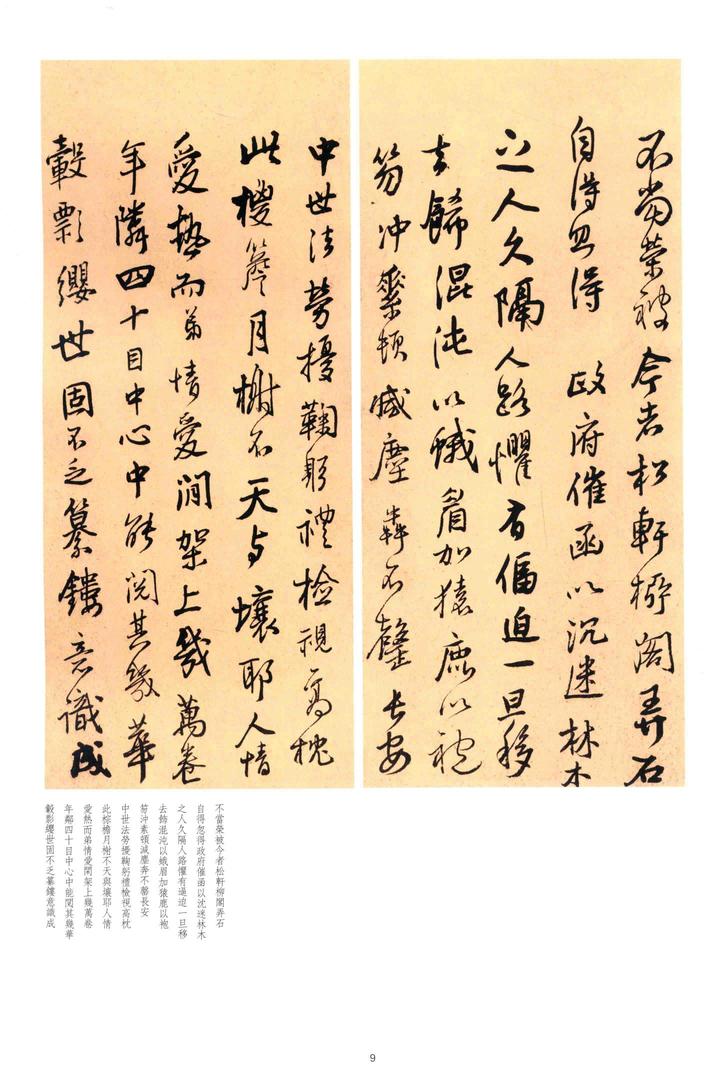 不當榮被今者松軒柳閣弄石
自得忽得 政府催函以沉迷林木
之人久隔人路懼有偪迫一旦移
去餙混沌以蛾眉加猿鹿以袍
笏冲素頓減塵犇不罄長安
中世法勞擾鞠躬禮檢視高枕
此椶簷月榭不天与壤耶人情
愛熱而弟情愛澗架上幾萬卷
年隣四十目中心中能閱其幾華
轂影纓世固不乏纂鏤意識成
不當榮被今者松軒柳閣弄石
自得忽得政府催函以沈迷林木
之人久隔人路懼有逼迫一旦移
去飾混沌以蛾眉加猿鹿以袍
笏沖素頓減塵奔不罄長安
中世法勞擾鞠躬禮檢視高枕
此棕檐月榭不天與壤耶人情
愛熱而弟情愛閑架上幾萬卷
年鄰四十目中心中能閱其幾華
轂影纓世固不乏纂鏤意識成
9